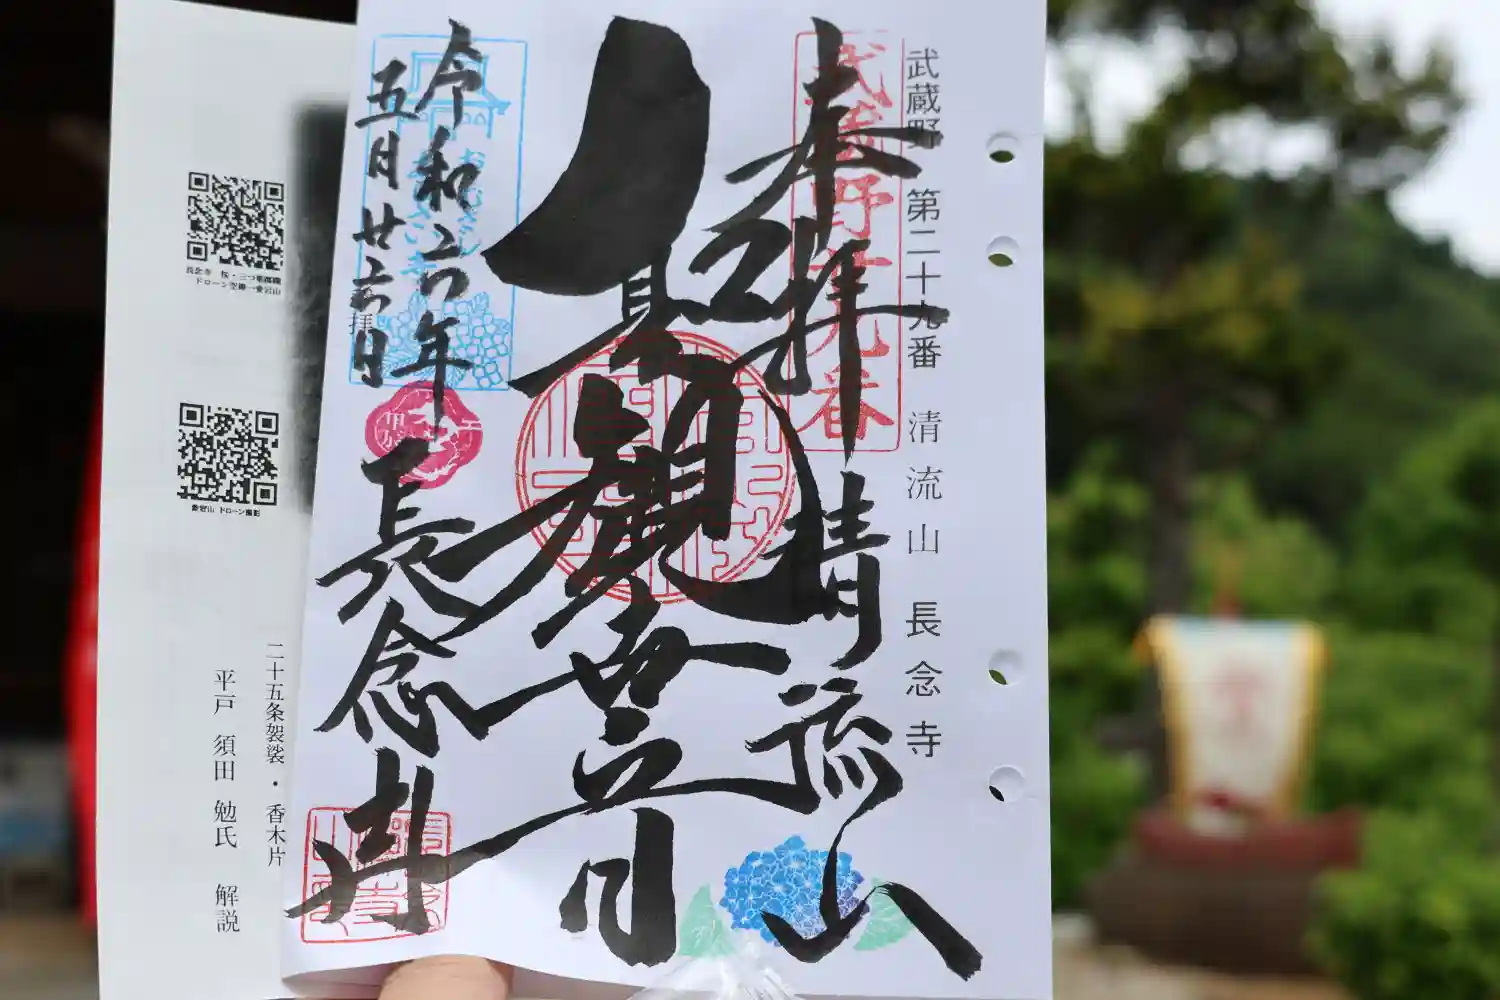 武蔵野 第二十九番 清流山 長念寺
奉拝
清流山
武蔵野
九番
聖観世音
令和六年
五月廿六日
拝
長念寺
おむさし
長念寺 桜・三つ葉躑躅
ドローン空撮ー愛宕山
愛宕山 ドローン撮影
二十五条袈裟・香木片
平戸 須田 勉氏 解説